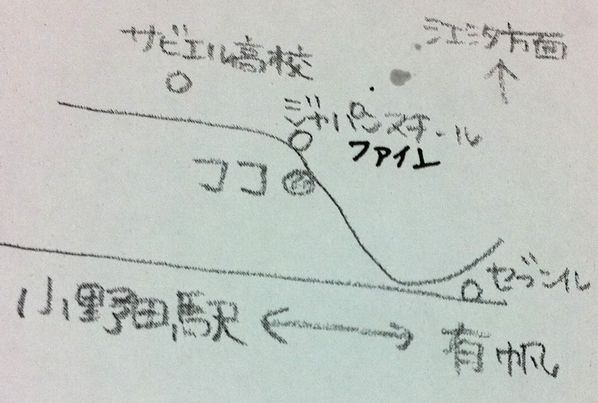 サビエル高校
江汐方面
ジャパンスチール
ファイト
ココ
セブンイレ
小野田駅
有帆